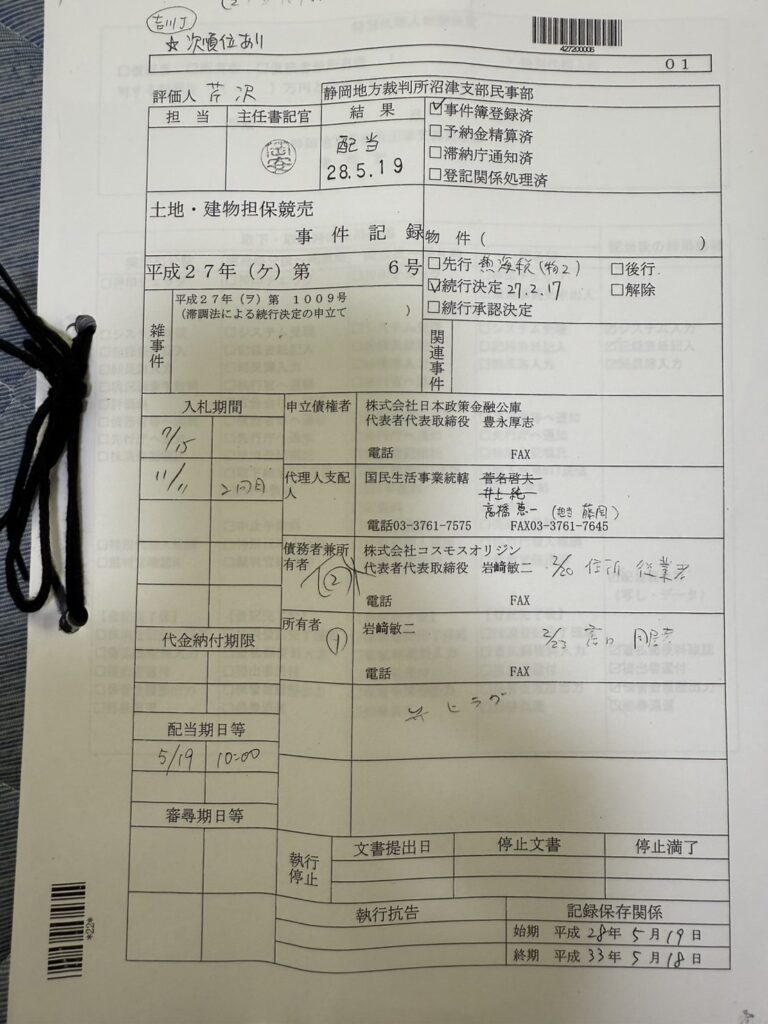 吉川J
☆次順位あり
427200006
01
評価人 芹沢
静岡地方裁判所沼津支部民事部
担当 主任書記官 結果
配当
28.5.19
☑事件簿登録済
□予納金精算済
□滞納庁通知済
□登記関係処理済
土地・建物担保競売
事件記録
物件( )
平成27年(ケ)第 6号
□先行 熱海税(物2) □後行
☑続行決定 27.2.17 □解除
□続行承認決定
雑事件
平成27年(ヲ)第 1009号
(滞調法による続行決定の申立て )
関連事件
入札期間
7/15
11/11 2回目
申立債権者
株式会社日本政策金融公庫
代表者代表取締役 豊永厚志
電話 FAX
代理人支配人
国民生活事業統轄 菅名啓夫
井上純一
高橋恵一 (担 藤岡)
電話03-3761-7575 FAX03-3761-7645
債務者兼所有者
(2)
株式会社コスモスオリジン
代表者代表取締役 岩﨑敏二 2/20 住所 従業者
電話 FAX
所有者
①
岩﨑敏二
2/23
電話 FAX
代金納付期限
配当期日等
5/19 10:00
審尋期日等
執行停止
文書提出日 停止文書 停止満了
執行抗告
記録保存関係
始期 平成 28年 5月 19日
終期 平成 33年 5月 18日
*22*